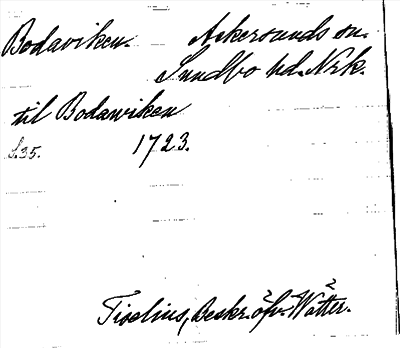 Bodaviken. Askersunds sn.
Sundbo hd. Nrk.
til Bodawiken
S. 35. 1723.
Tiselius, Beskr. öfv. Wätter.